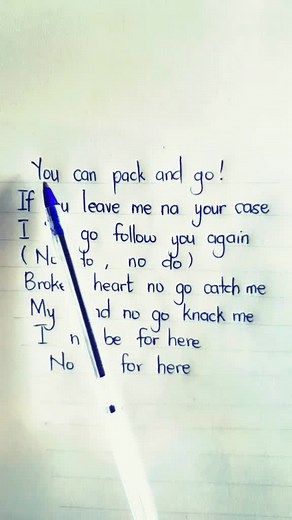 You can pack and go!
If leave me na your case
I go follow you again
( to, no do)
Broke heart no go catch me
My no go knack me
I be for here
No for here